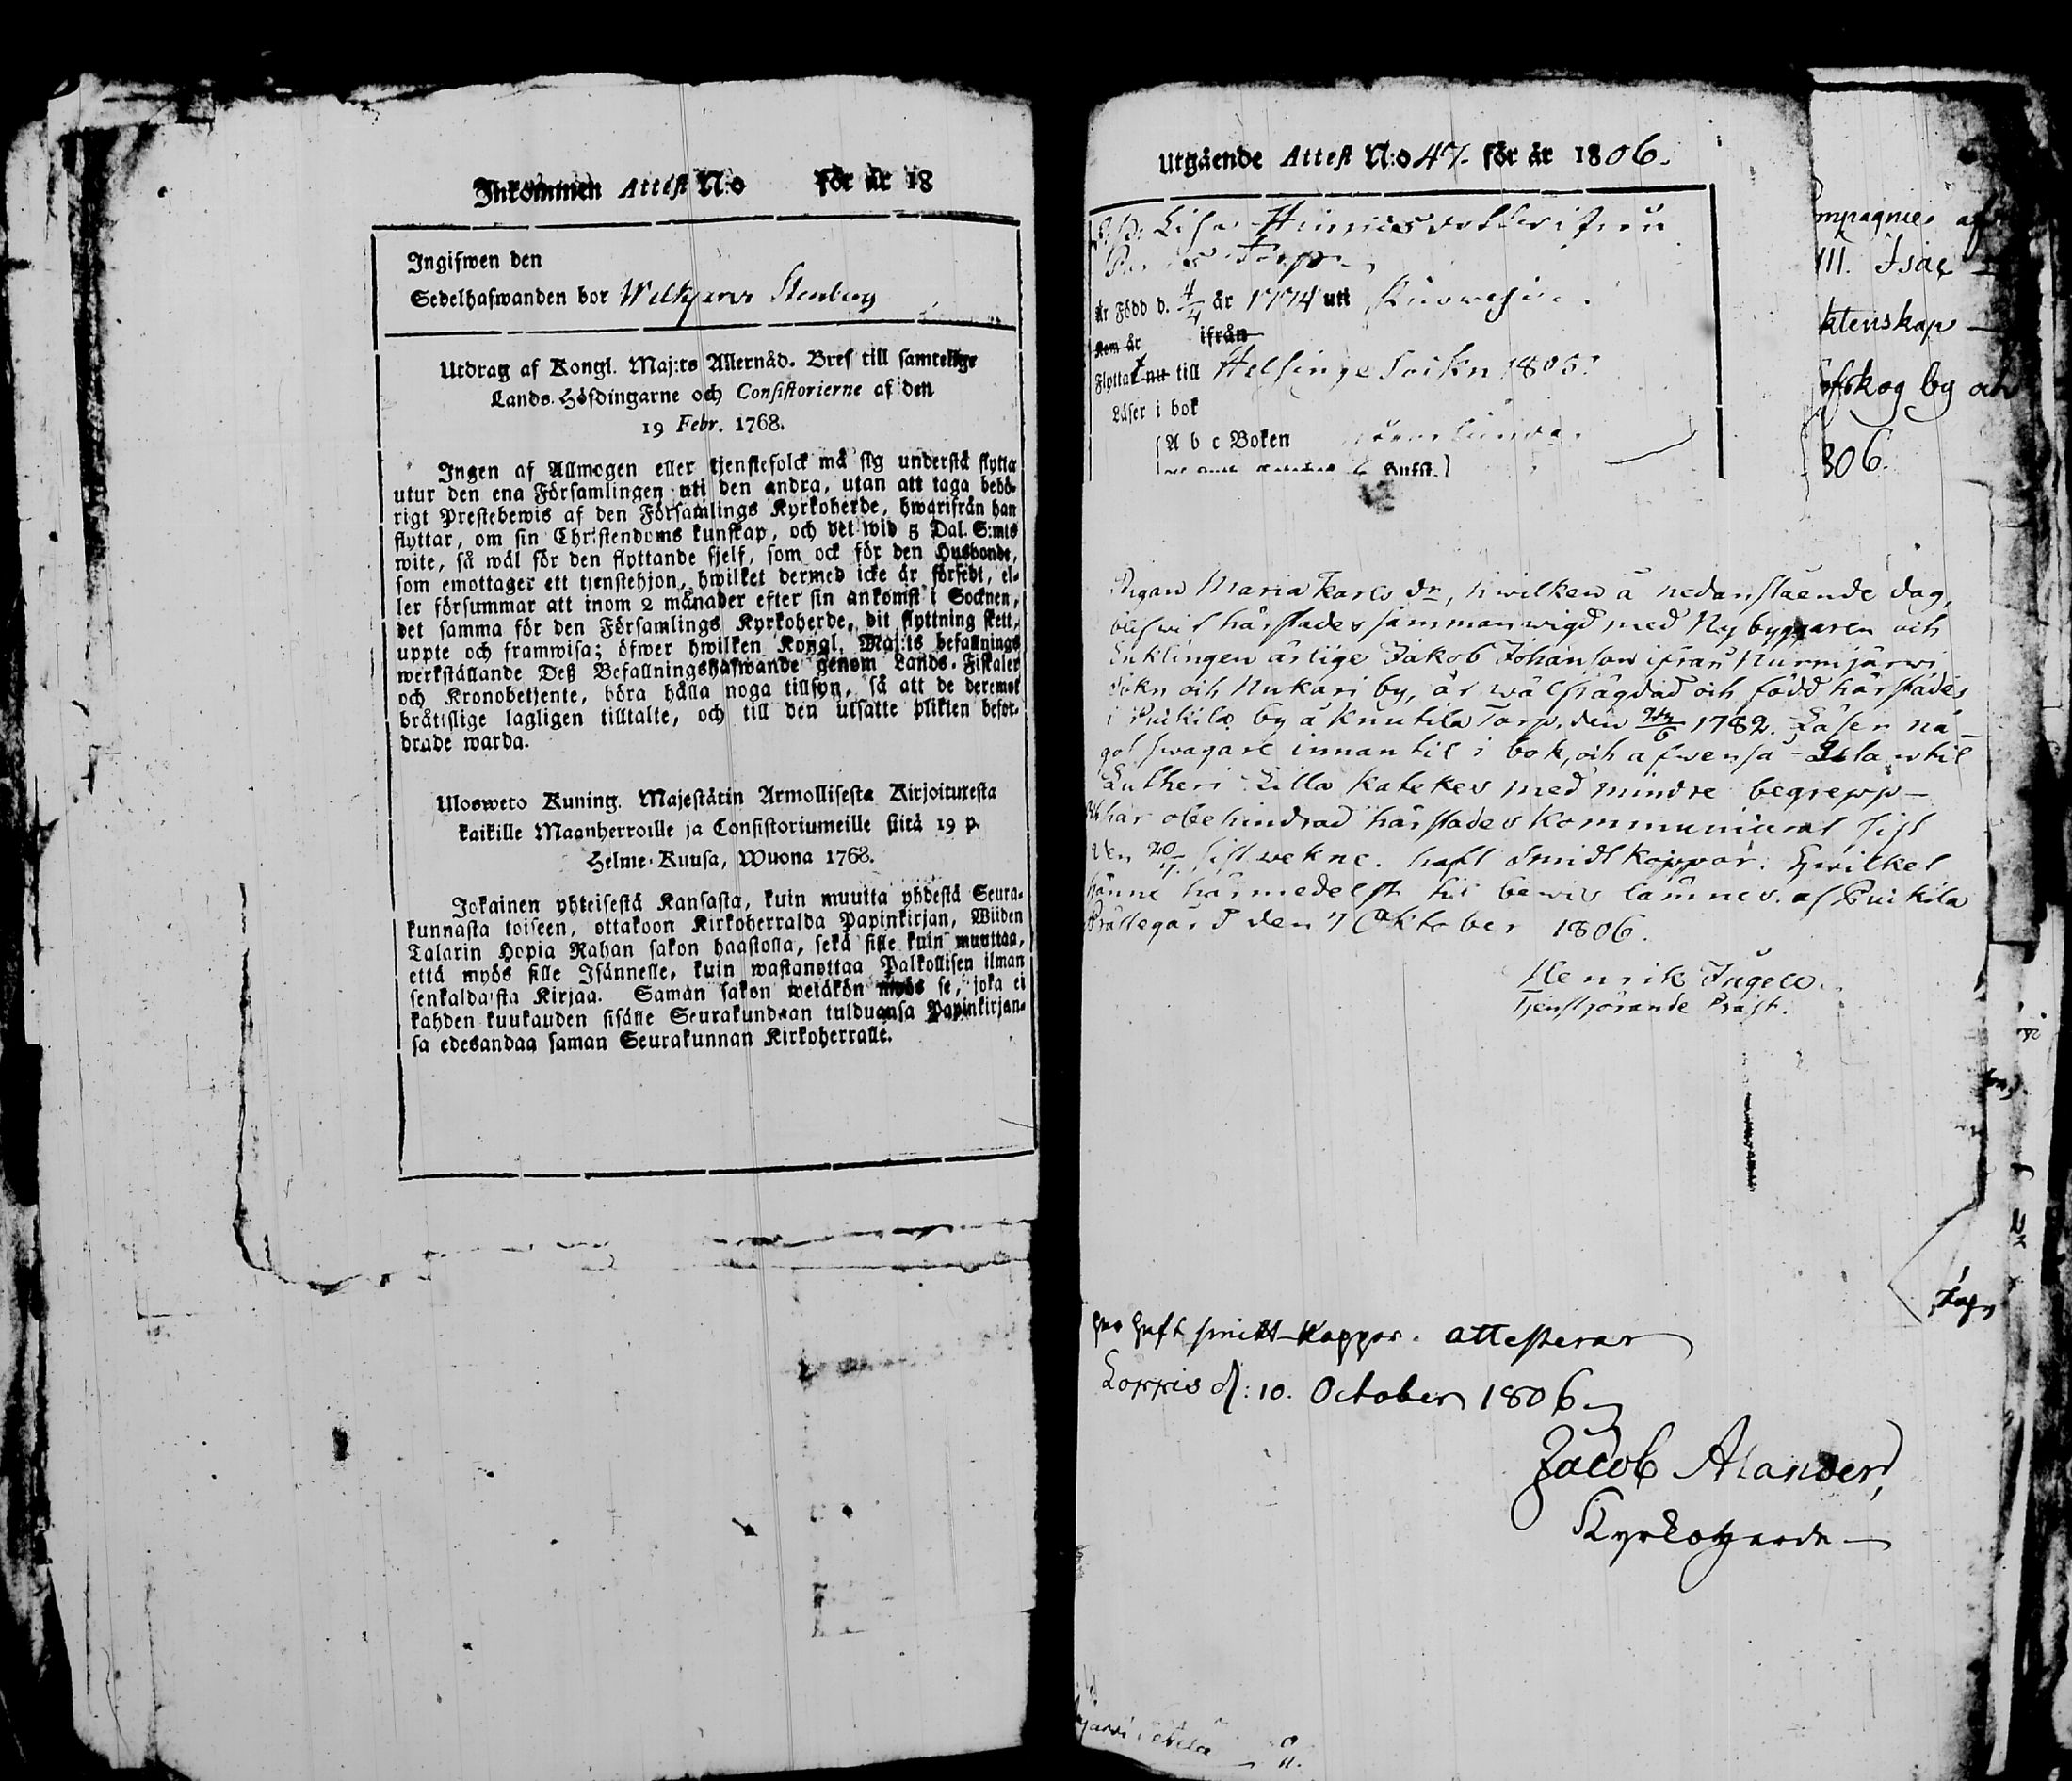 Inkommen Attest N:o för år 18
Ingifwen den
Sedelhafwanden bor Wilkjarvi Stenberg
Utdrag af Kongl. Maj:ts Allernåd. Bref till samtelige
Lands-Höfdingarne och Consistorierne af den
19 Febr. 1768.
Ingen af Allmogen eller tjenstefolck må sig understå flytta
utur den ena Församlingen uti den andra, utan att taga behö-
rigt Prestebewis af den Församlings Kyrkoherde, hwarifrån han
flyttar, om sin Christendoms kunskap, och det wid 5 Dal. S:mts
wite, så wäl för den flyttande sjelf, som ock för den Husbonde,
som emottager ett tjenstehjon, hwilket dermed icke är försedt, el-
ler försummar att inom 2 månader efter sin ankomst i Socknen,
det samma för den Församlings Kyrkoherde, dit flyttning skett,
uppte och framwisa; öfwer hwilken Kongl. Maj:ts befallnings
werkställande Deß Befallningshafwande genom Lands-Fiskaler
och Kronobetjente, böra hålla noga tillsyn, så att de deremot
bråttslige lagligen tilltalte, och till den utsatte plikten befor-
drade warda.
Ulosweto Kuning. Majestätin Armollisesta Kirjoituxesta
kaikille Maanherroille ja Consistoriumeille siitä 19 p.
Helme-Kuusa, Wuona 1768.
Jokainen yhteisestä Kansasta, kuin muutta yhdestä Seura-
kunnasta toiseen, ottakoon Kirkoherralda Papinkirjan, Wiiden
Talarin Hopia Rahan sakon haastolla, sekä sille kuin muuttaa,
että myös sille Isännelle, kuin wastanottaa Palkollisen ilman
senkaldaista Kirjaa. Saman sakon wetäkön myös se, joka ei
kahden kuukauden sisälle Seurakundaan tulduansa Papinkirjan-
sa edesandaa saman Seurakunnan Kirkoherralle.
Utgående Attest N:o 47. för år 1806.
Lisa
Torp
är Född d. 4/4 år 1774 uti
Kom år ifrån
Flyttat nu till Helsinge Sockn 1805.
Läser i bok
A b c Boken
Pigan Maria Karls dr, hwilken å nedanstående dag,
blefwit härstädes sammanwigd med Nybyggaren och
Enklingen ärlige Jakob Johanson ifrån Nurmijärwi
sokn och Nukari by, är wälfrägdad och född härstädes
i Puikila by å Knutila Torp, den 24/6 1782. Läser nå-
got swagare innantil i bok, och äfwenså utantil
Lutheri Lilla Katekes med mindre begrepp-
har obehindrad härstädes kommunicerat sist
den 20/7 sistwekne. haft Smidtkoppor. Hwilket
hänne härmedelst til bewis lämnes. af Puikila
Prästegård den 7 Oktober 1806.
Henrik Ingelo.
Tjenstgörande Präst.
har haft smitt-Koppor. attesterar
Loppis d: 10. October 1806
Jacob Alander,
Kyrkoherde
mpagnie af
III. Isac
ktenskap
fskog by och
806.